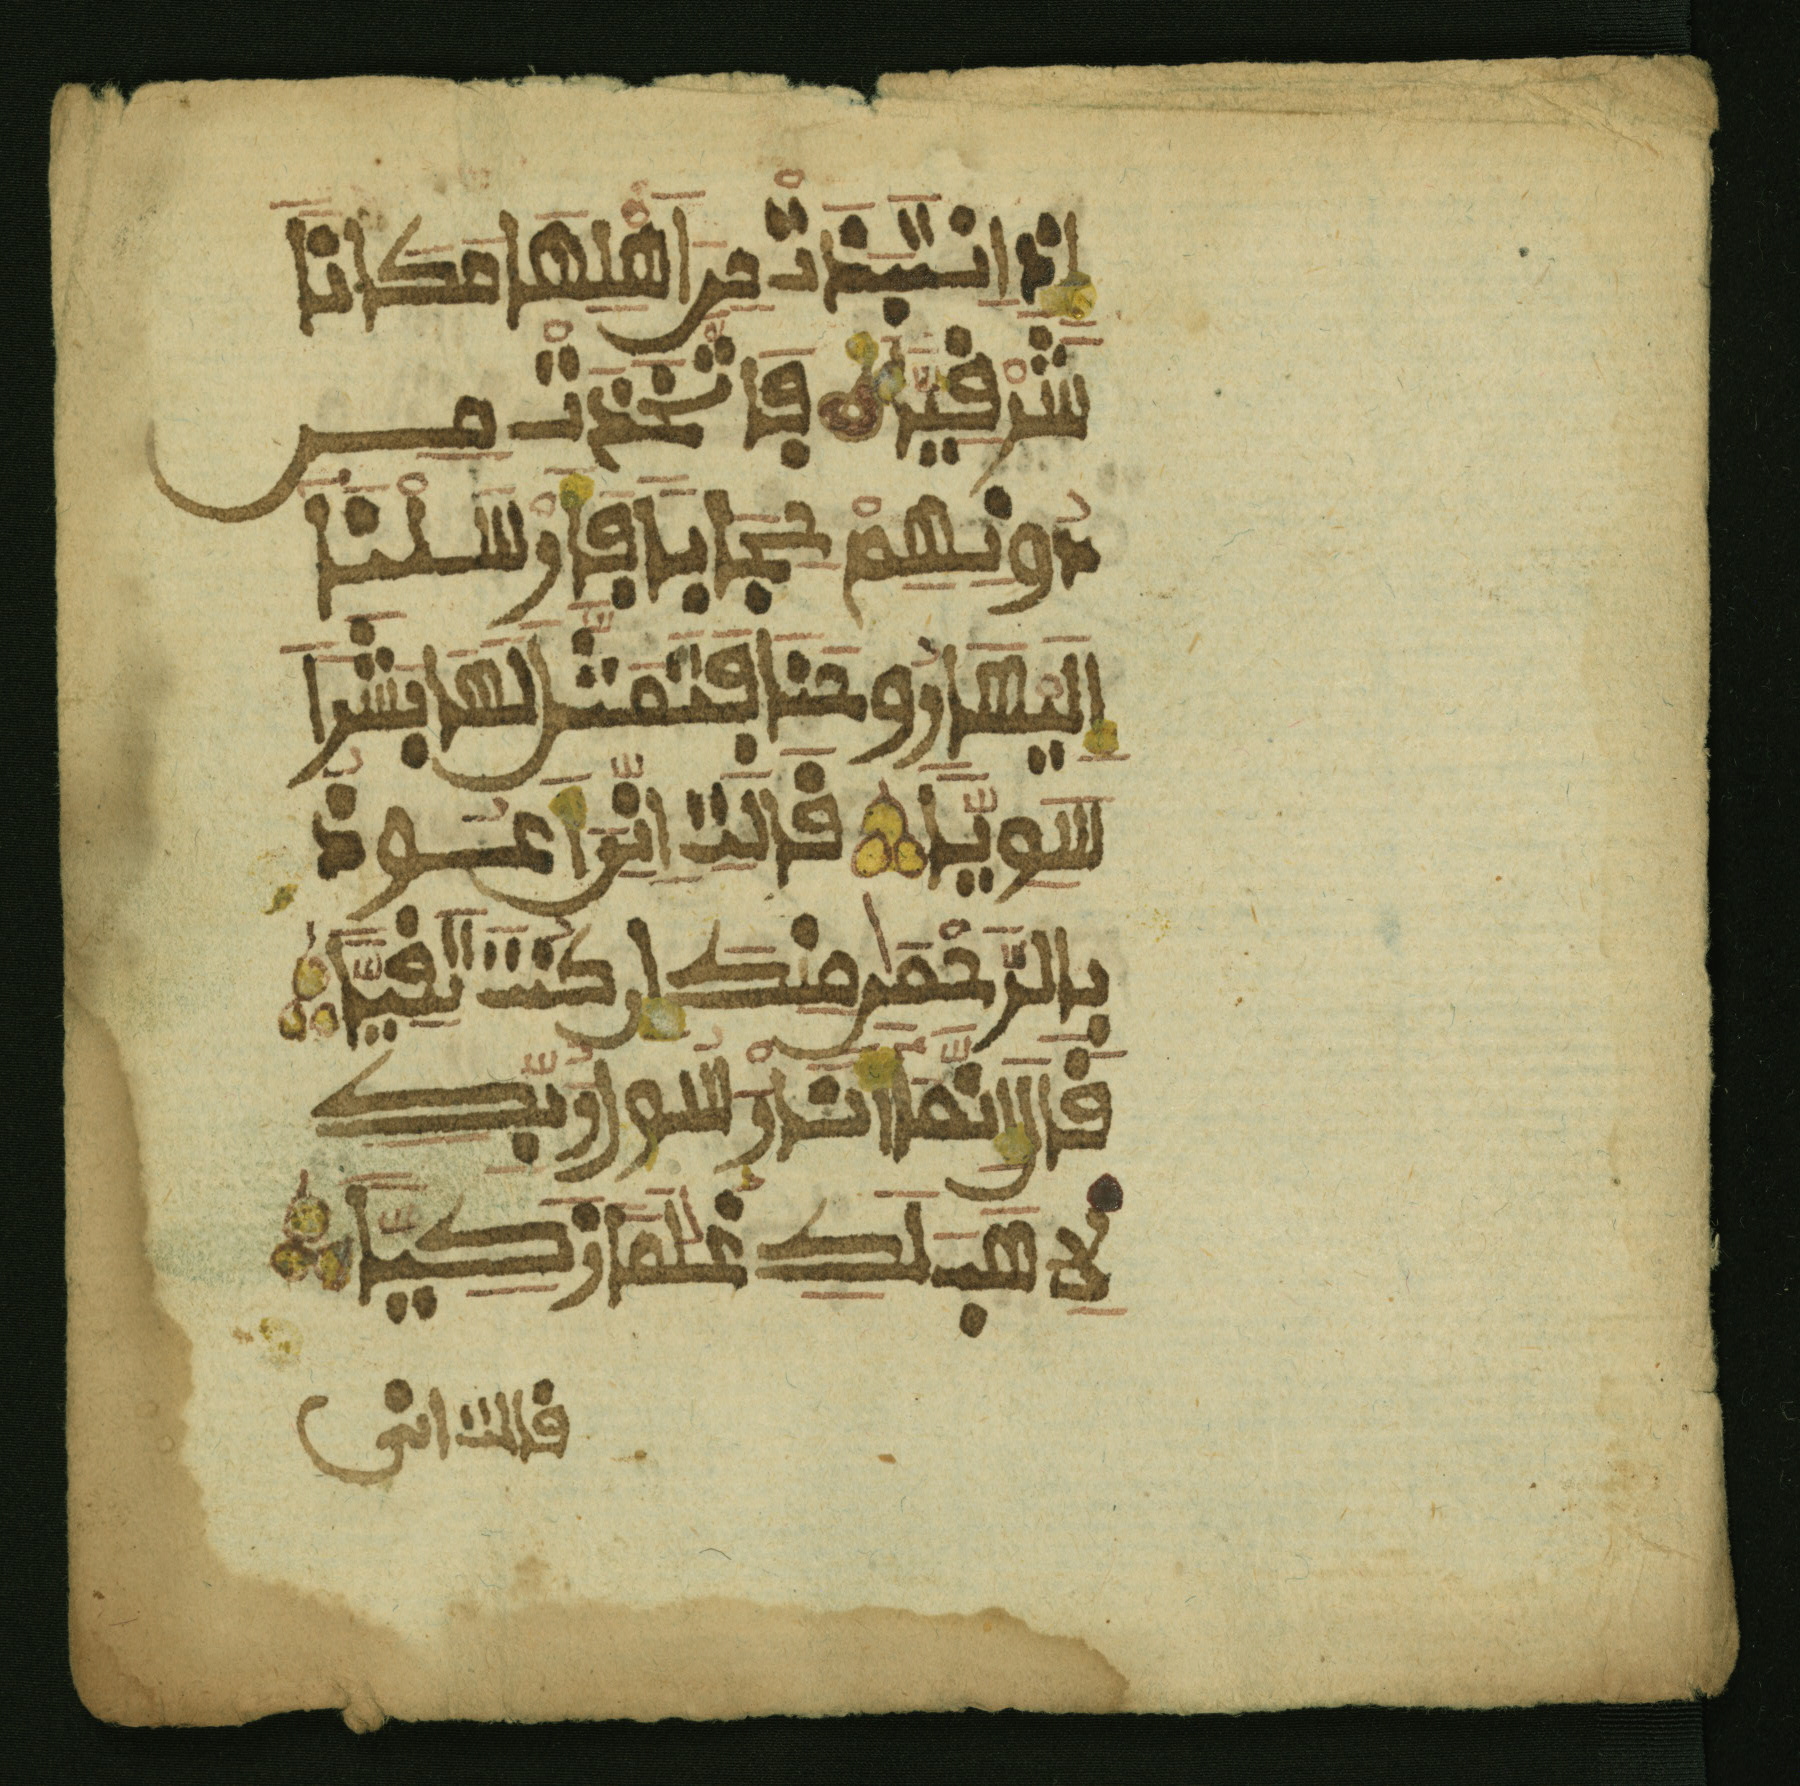 إِذِ اِنتَبَذَتْ مِنَ اَهْلِهَا مَكَانًا
شَرْقِيًّا فَاتَّخَذَتْ مِن
دُونِهِمْ حِجَابًا فَأَرْسَلْنَا
إِلَيْهَا رُوحَنَا فَتَمَثَّلَ لَهَا بَشَرًا
سَوِيًّا قَالَتِ اِنِّيَ أَعُوذُ
بِالرَّحْمَٰنِ مِنكَ إِن كُنتَ تَقِيًّا
قَالَ إِنَّمَا أَنَا رَسُولُ رَبِّكِ
لِيَهَبَ لَكِ غُلَٰمًا زَكِيًّا
قالت انى